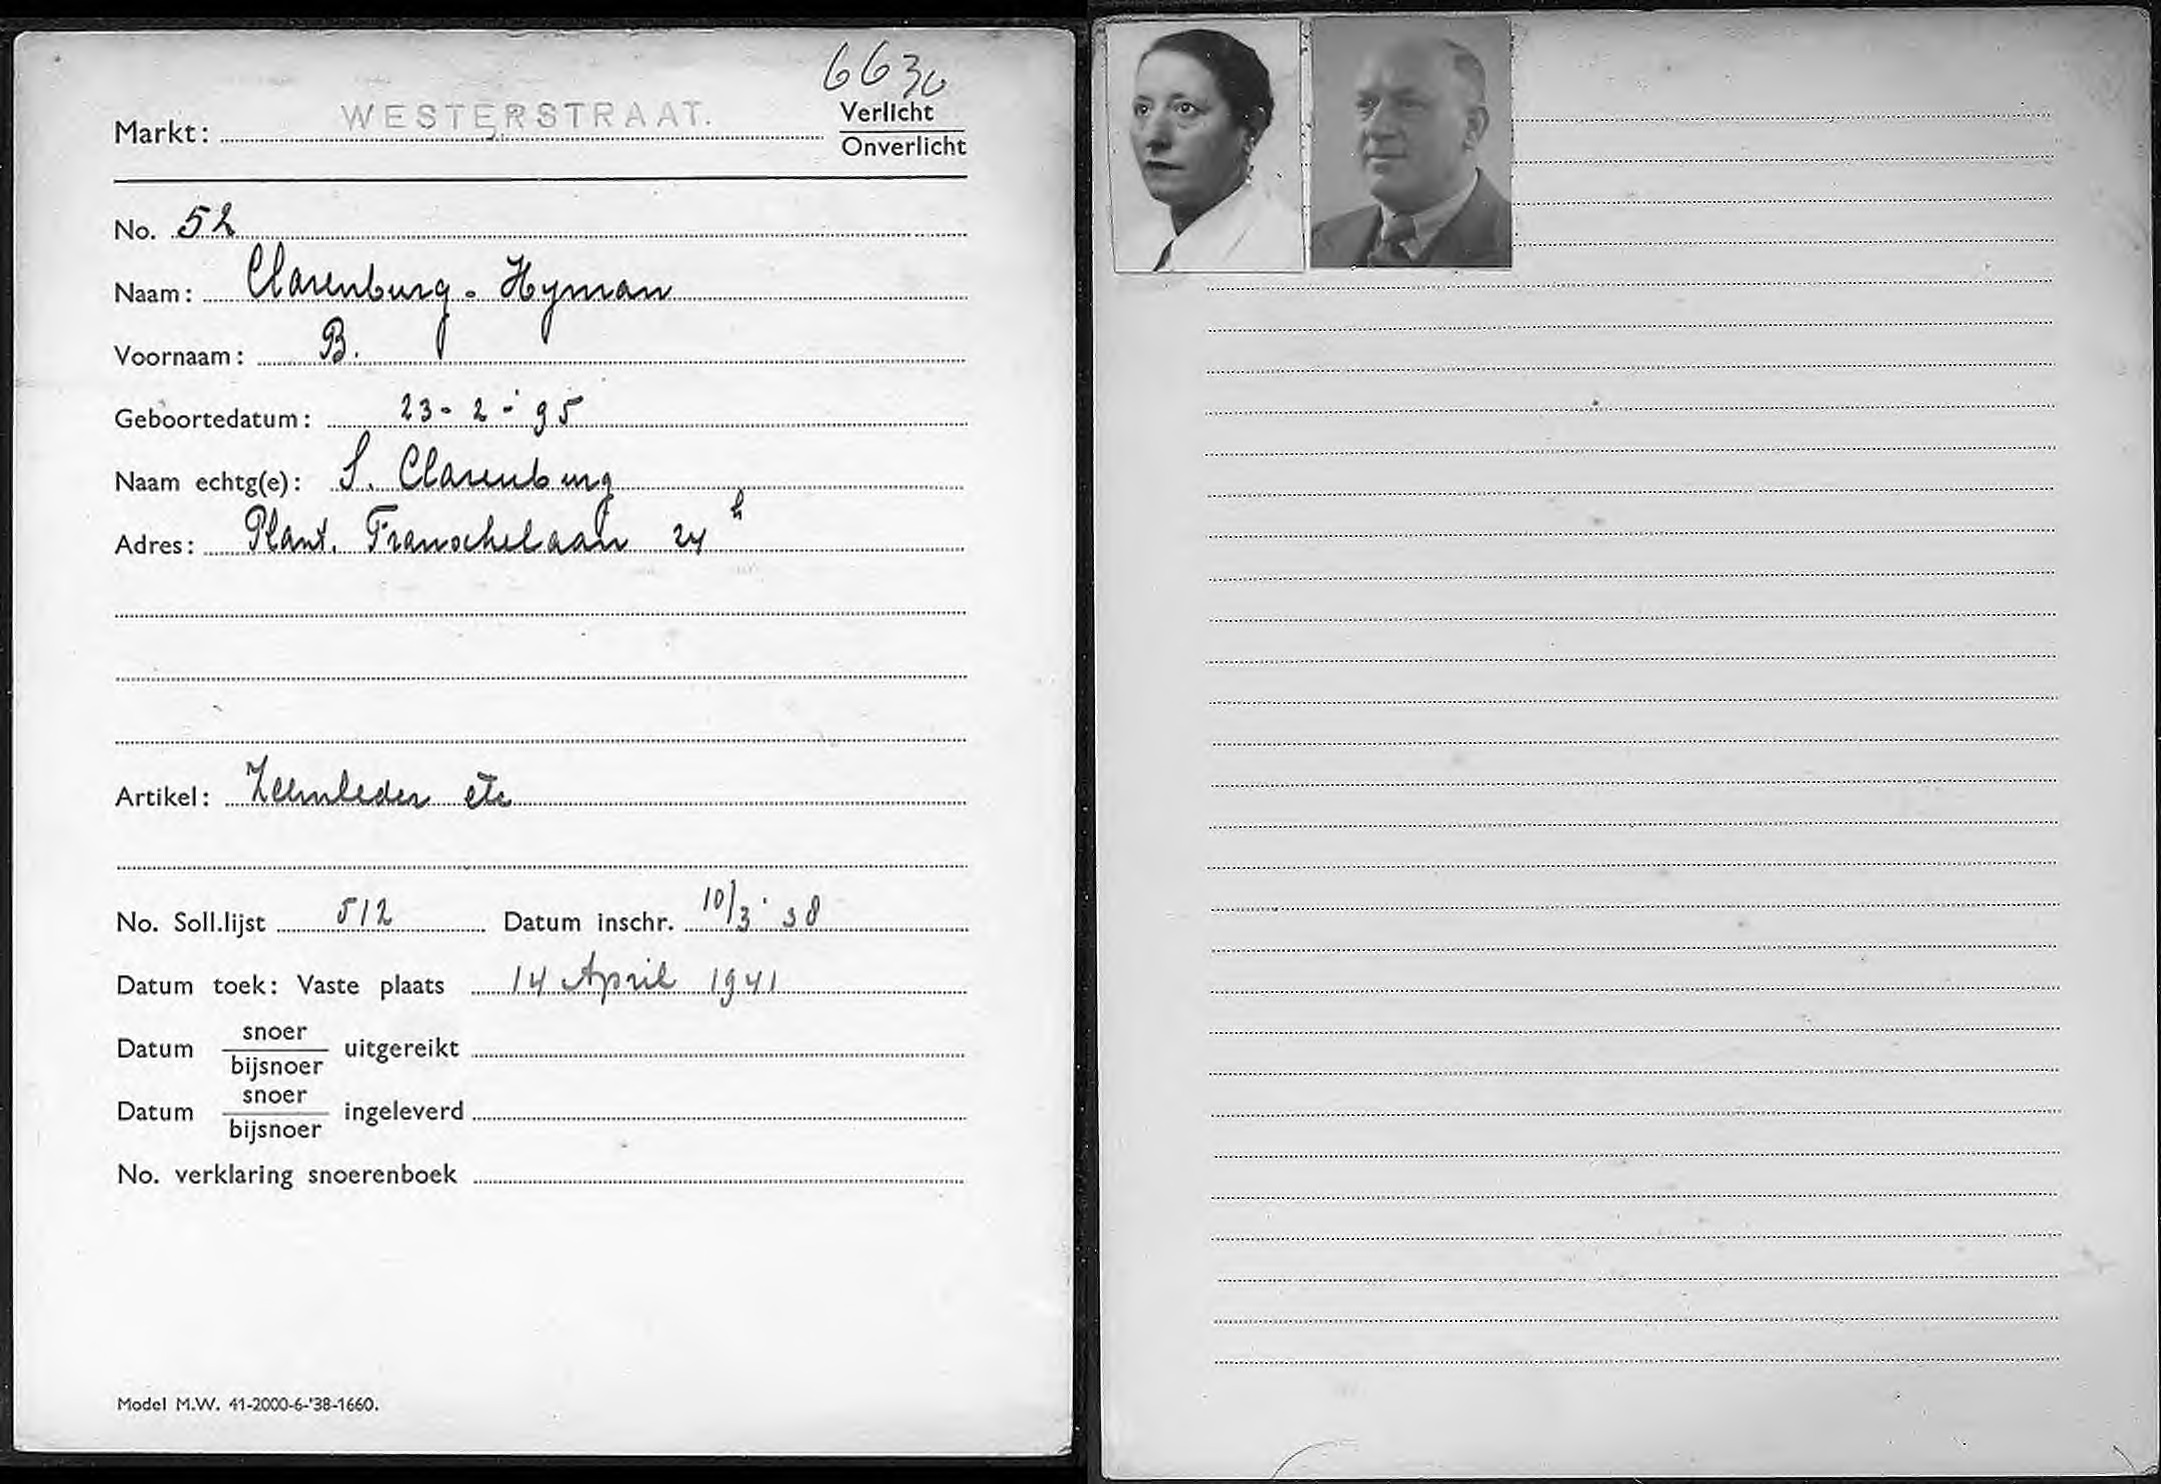 6630
Markt: WESTERSTRAAT.
Verlicht
Onverlicht
No. 52
Naam: Clarenburg - Hyman
Voornaam: B.
Geboortedatum: 23-2-'95
Naam echtg(e): S. Clarenburg
Adres: Plant. Franschelaan 24 h
Artikel: Zeemleder etc
No. Soll.lijst 512 Datum inschr. 10/3 '38
Datum toek: Vaste plaats 14 April 1941
Datum snoer/bijsnoer uitgereikt
Datum snoer/bijsnoer ingeleverd
No. verklaring snoerenboek
Model M.W. 41-2000-6-'38-1660.